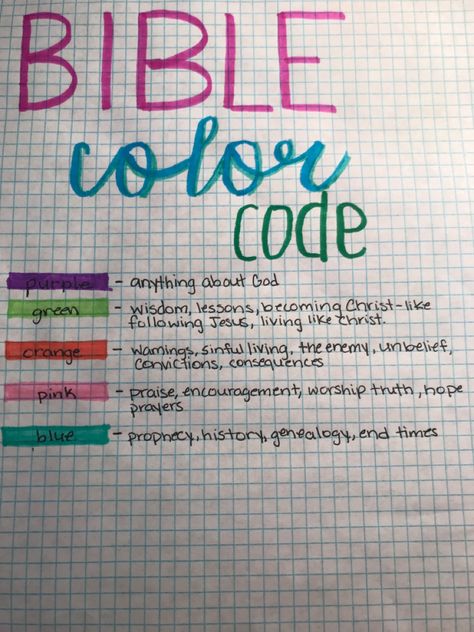 BIBLE
color
code
purple - anything about God
green - wisdom, lessons, becoming Christ-like
following Jesus, living like christ.
orange - warnings, sinful living, the enemy, unbelief,
convictions, consequences
pink - praise, encouragement, worship truth, hope
prayers
blue - prophecy, history, genealogy, end times